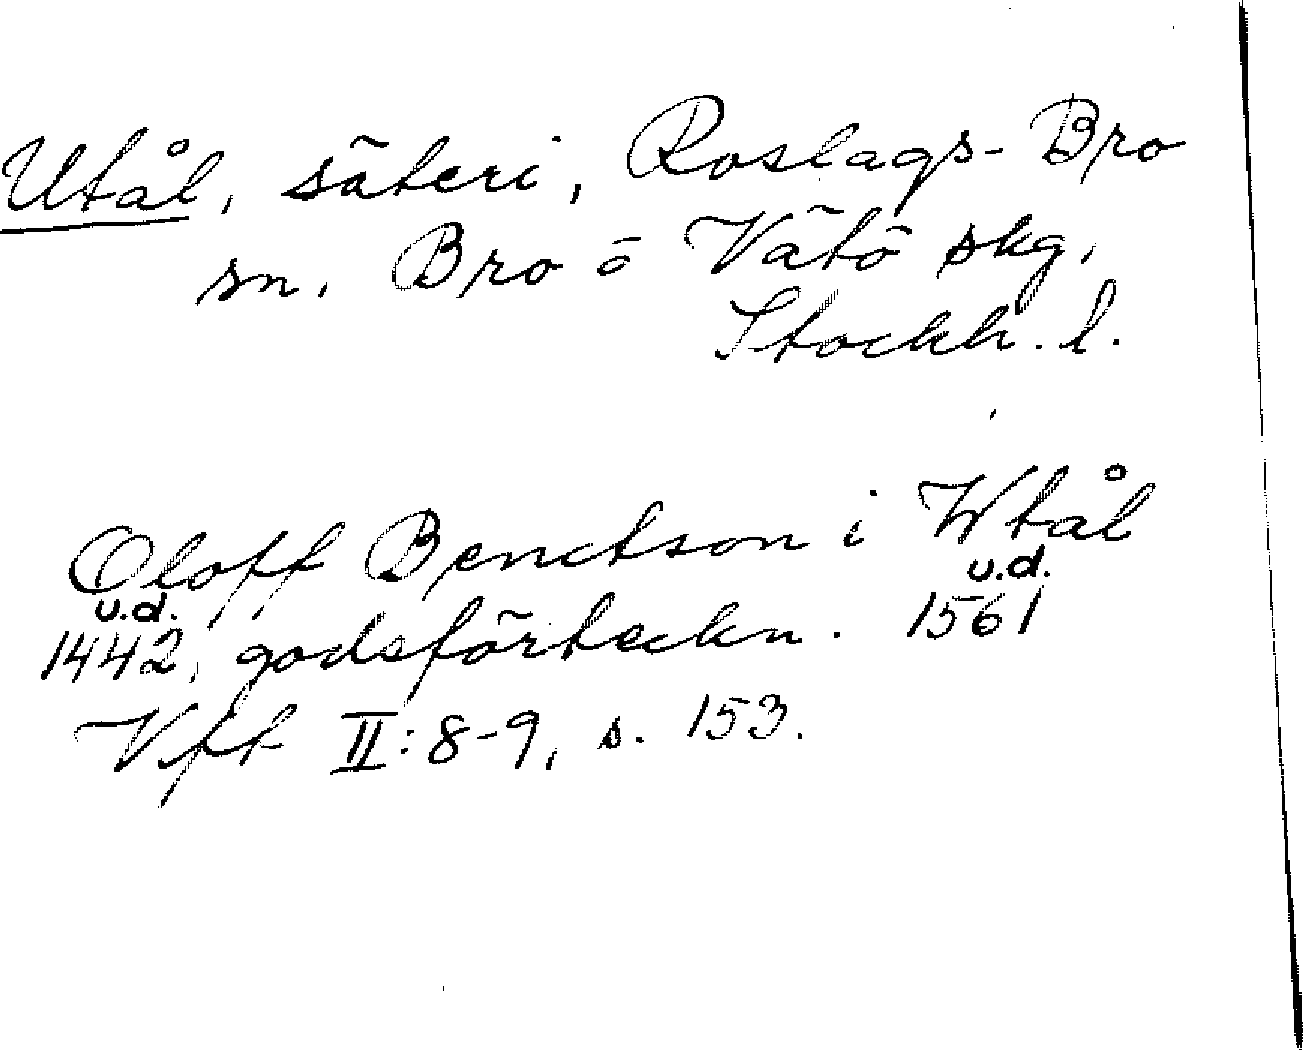 Utål, säteri, Roslags-Bro
sn. Bro o Vätö skg,
Stockh. l.
Oloff Benctson i Wtål
u.d. u.d.
1442, godsförteckn. 1561
Vft II:8-9, s. 153.